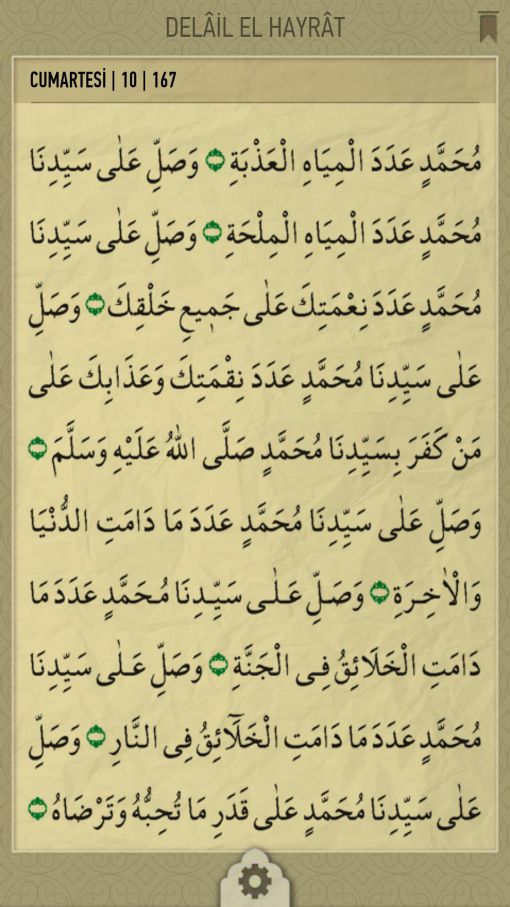 DELÂİL EL HAYRÂT
CUMARTESİ | 10 | 167
مُحَمَّدٍ عَدَدَ الْمِيَاهِ الْعَذْبَةِ ۝ وَصَلِّ عَلٰى سَيِّدِنَا
مُحَمَّدٍ عَدَدَ الْمِيَاهِ الْمِلْحَةِ ۝ وَصَلِّ عَلٰى سَيِّدِنَا
مُحَمَّدٍ عَدَدَ نِعْمَتِكَ عَلٰى جَمٖيعِ خَلْقِكَ ۝ وَصَلِّ
عَلٰى سَيِّدِنَا مُحَمَّدٍ عَدَدَ نِقْمَتِكَ وَعَذَابِكَ عَلٰى
مَنْ كَفَرَ بِسَيِّدِنَا مُحَمَّدٍ صَلَّى اللّٰهُ عَلَيْهِ وَسَلَّمَ ۝
وَصَلِّ عَلٰى سَيِّدِنَا مُحَمَّدٍ عَدَدَ مَا دَامَتِ الدُّنْيَا
وَالْاٰخِرَةِ ۝ وَصَلِّ عَلٰى سَيِّدِنَا مُحَمَّدٍ عَدَدَ مَا
دَامَتِ الْخَلَائِقُ فِى الْجَنَّةِ ۝ وَصَلِّ عَلٰى سَيِّدِنَا
مُحَمَّدٍ عَدَدَ مَا دَامَتِ الْخَلَٓائِقُ فِى النَّارِ ۝ وَصَلِّ
عَلٰى سَيِّدِنَا مُحَمَّدٍ عَلٰى قَدَرِ مَا تُحِبُّهُ وَتَرْضَاهُ ۝